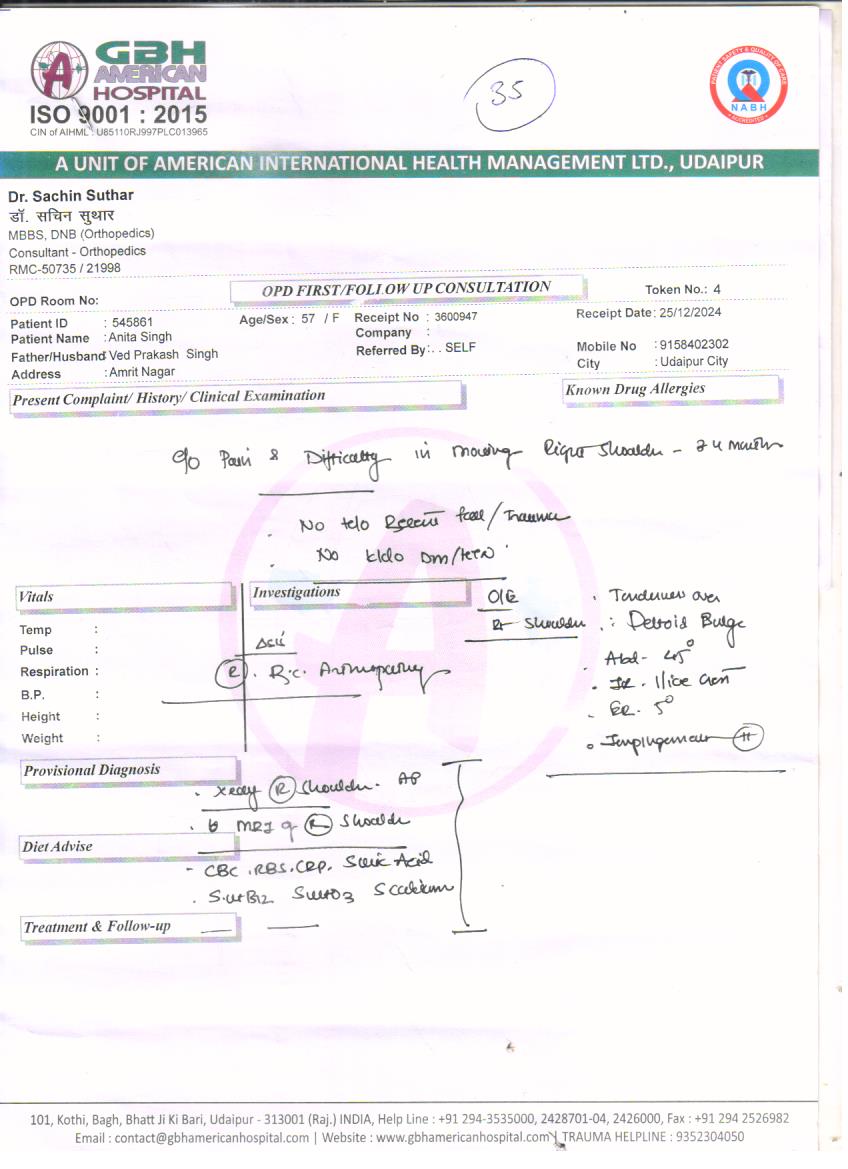 GBH
AMERICAN
HOSPITAL
ISO 9001 : 2015
CIN of AIHML : U85110RJ997PLC013965
35
PATIENT SAFETY & QUALITY OF CARE
NABH
ACCREDITED
A UNIT OF AMERICAN INTERNATIONAL HEALTH MANAGEMENT LTD., UDAIPUR
Dr. Sachin Suthar
डॉ. सचिन सुथार
MBBS, DNB (Orthopedics)
Consultant - Orthopedics
RMC-50735 / 21998
OPD FIRST/FOLLOW UP CONSULTATION
Token No.: 4
OPD Room No:
Patient ID : 545861 Age/Sex : 57 / F Receipt No : 3600947 Receipt Date: 25/12/2024
Patient Name : Anita Singh Company :
Father/Husband Ved Prakash Singh Referred By : . . SELF Mobile No : 9158402302
Address : Amrit Nagar City : Udaipur City
Present Complaint/ History/ Clinical Examination Known Drug Allergies
c/o Pain & Difficulty in moving Right Shoulder - 4 months
No h/o Recent fall/Trauma
No k/c/o DM/HTN
Vitals Investigations O/E Tenderness over
Temp : Rt Shoulder : Deltoid Bulge
Pulse :
Respiration : (R) . R.C. Arthropathy Abd - 45°
B.P. : IR -
Height : ER - 5°
Weight : Impingement
Provisional Diagnosis
Xray (R) Shoulder - AP
MRI of (R) Shoulder
Diet Advise
- CBC . RBS . CRP . S Uric Acid
. S. vit B12 S vit D3 S calcium
Treatment & Follow-up
101, Kothi, Bagh, Bhatt Ji Ki Bari, Udaipur - 313001 (Raj.) INDIA, Help Line : +91 294-3535000, 2428701-04, 2426000, Fax : +91 294 2526982
Email : contact@gbhamericanhospital.com | Website : www.gbhamericanhospital.com | TRAUMA HELPLINE : 9352304050